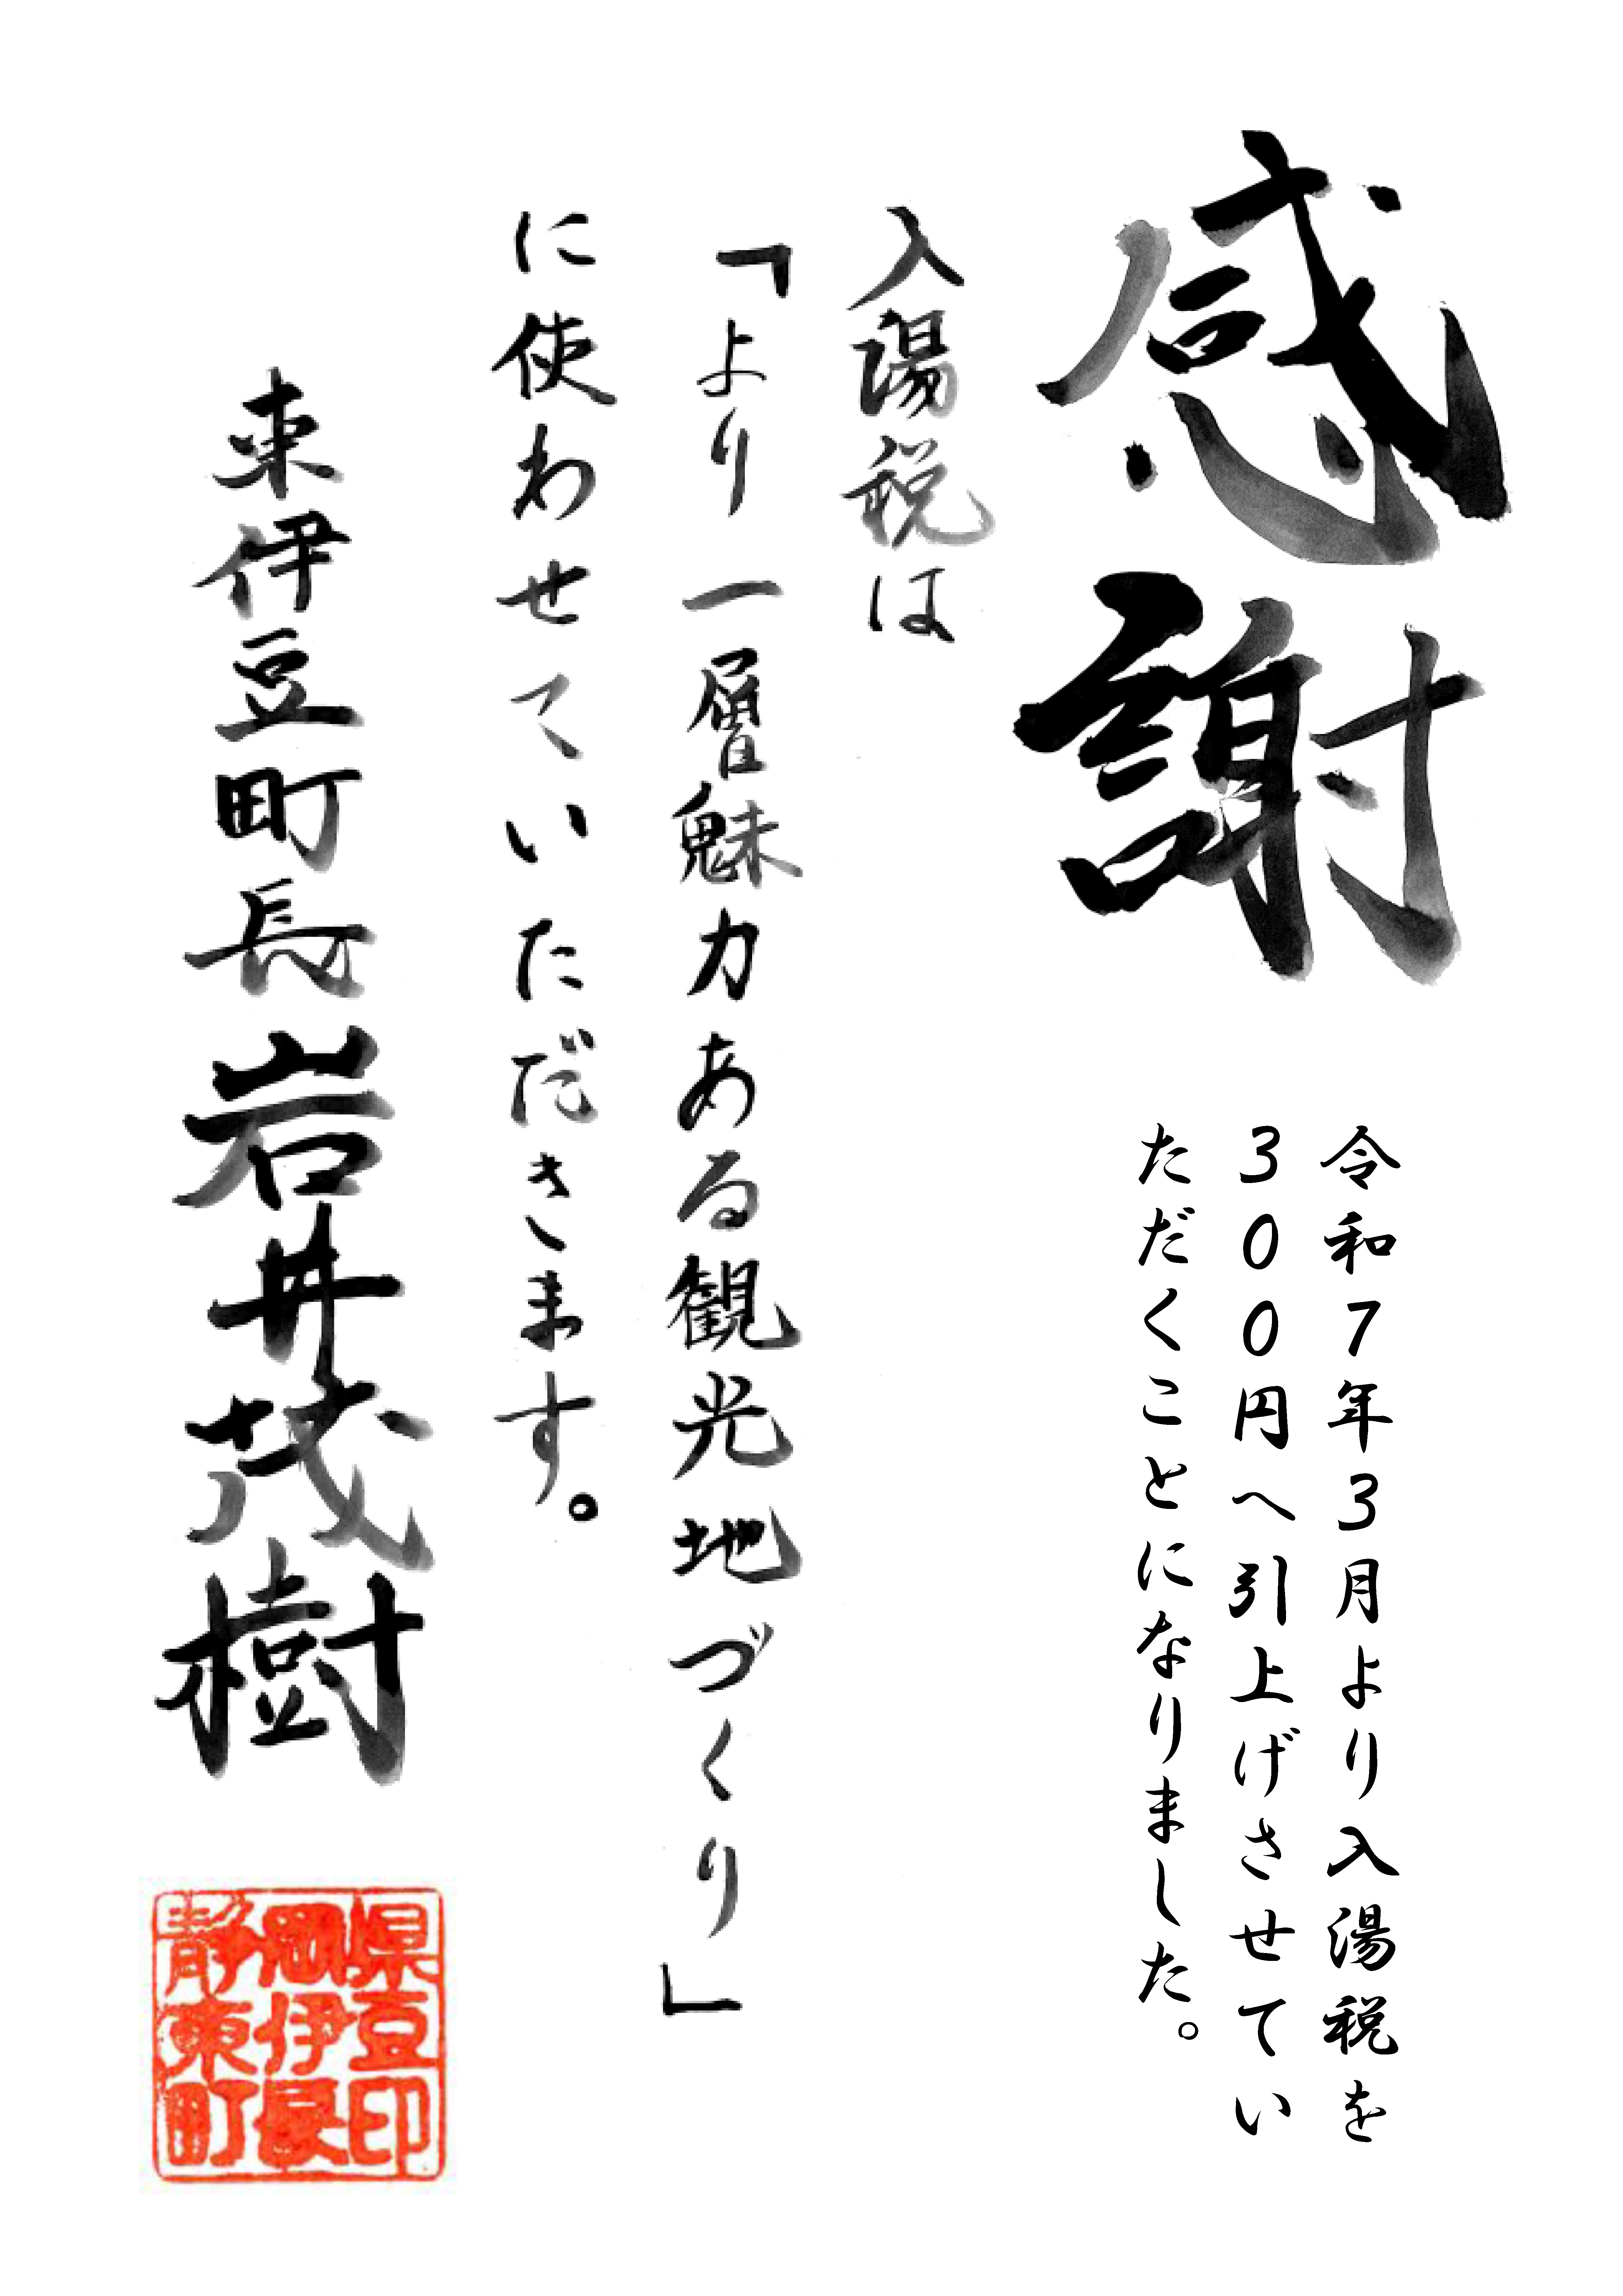 感謝
令和7年3月より入湯税を
300円へ引上げさせてい
ただくことになりました。
入湯税は
「より一層魅力ある観光地づくり」
に使わせていただきます。
東伊豆町長岩井茂樹
静岡県
東伊豆
町長印